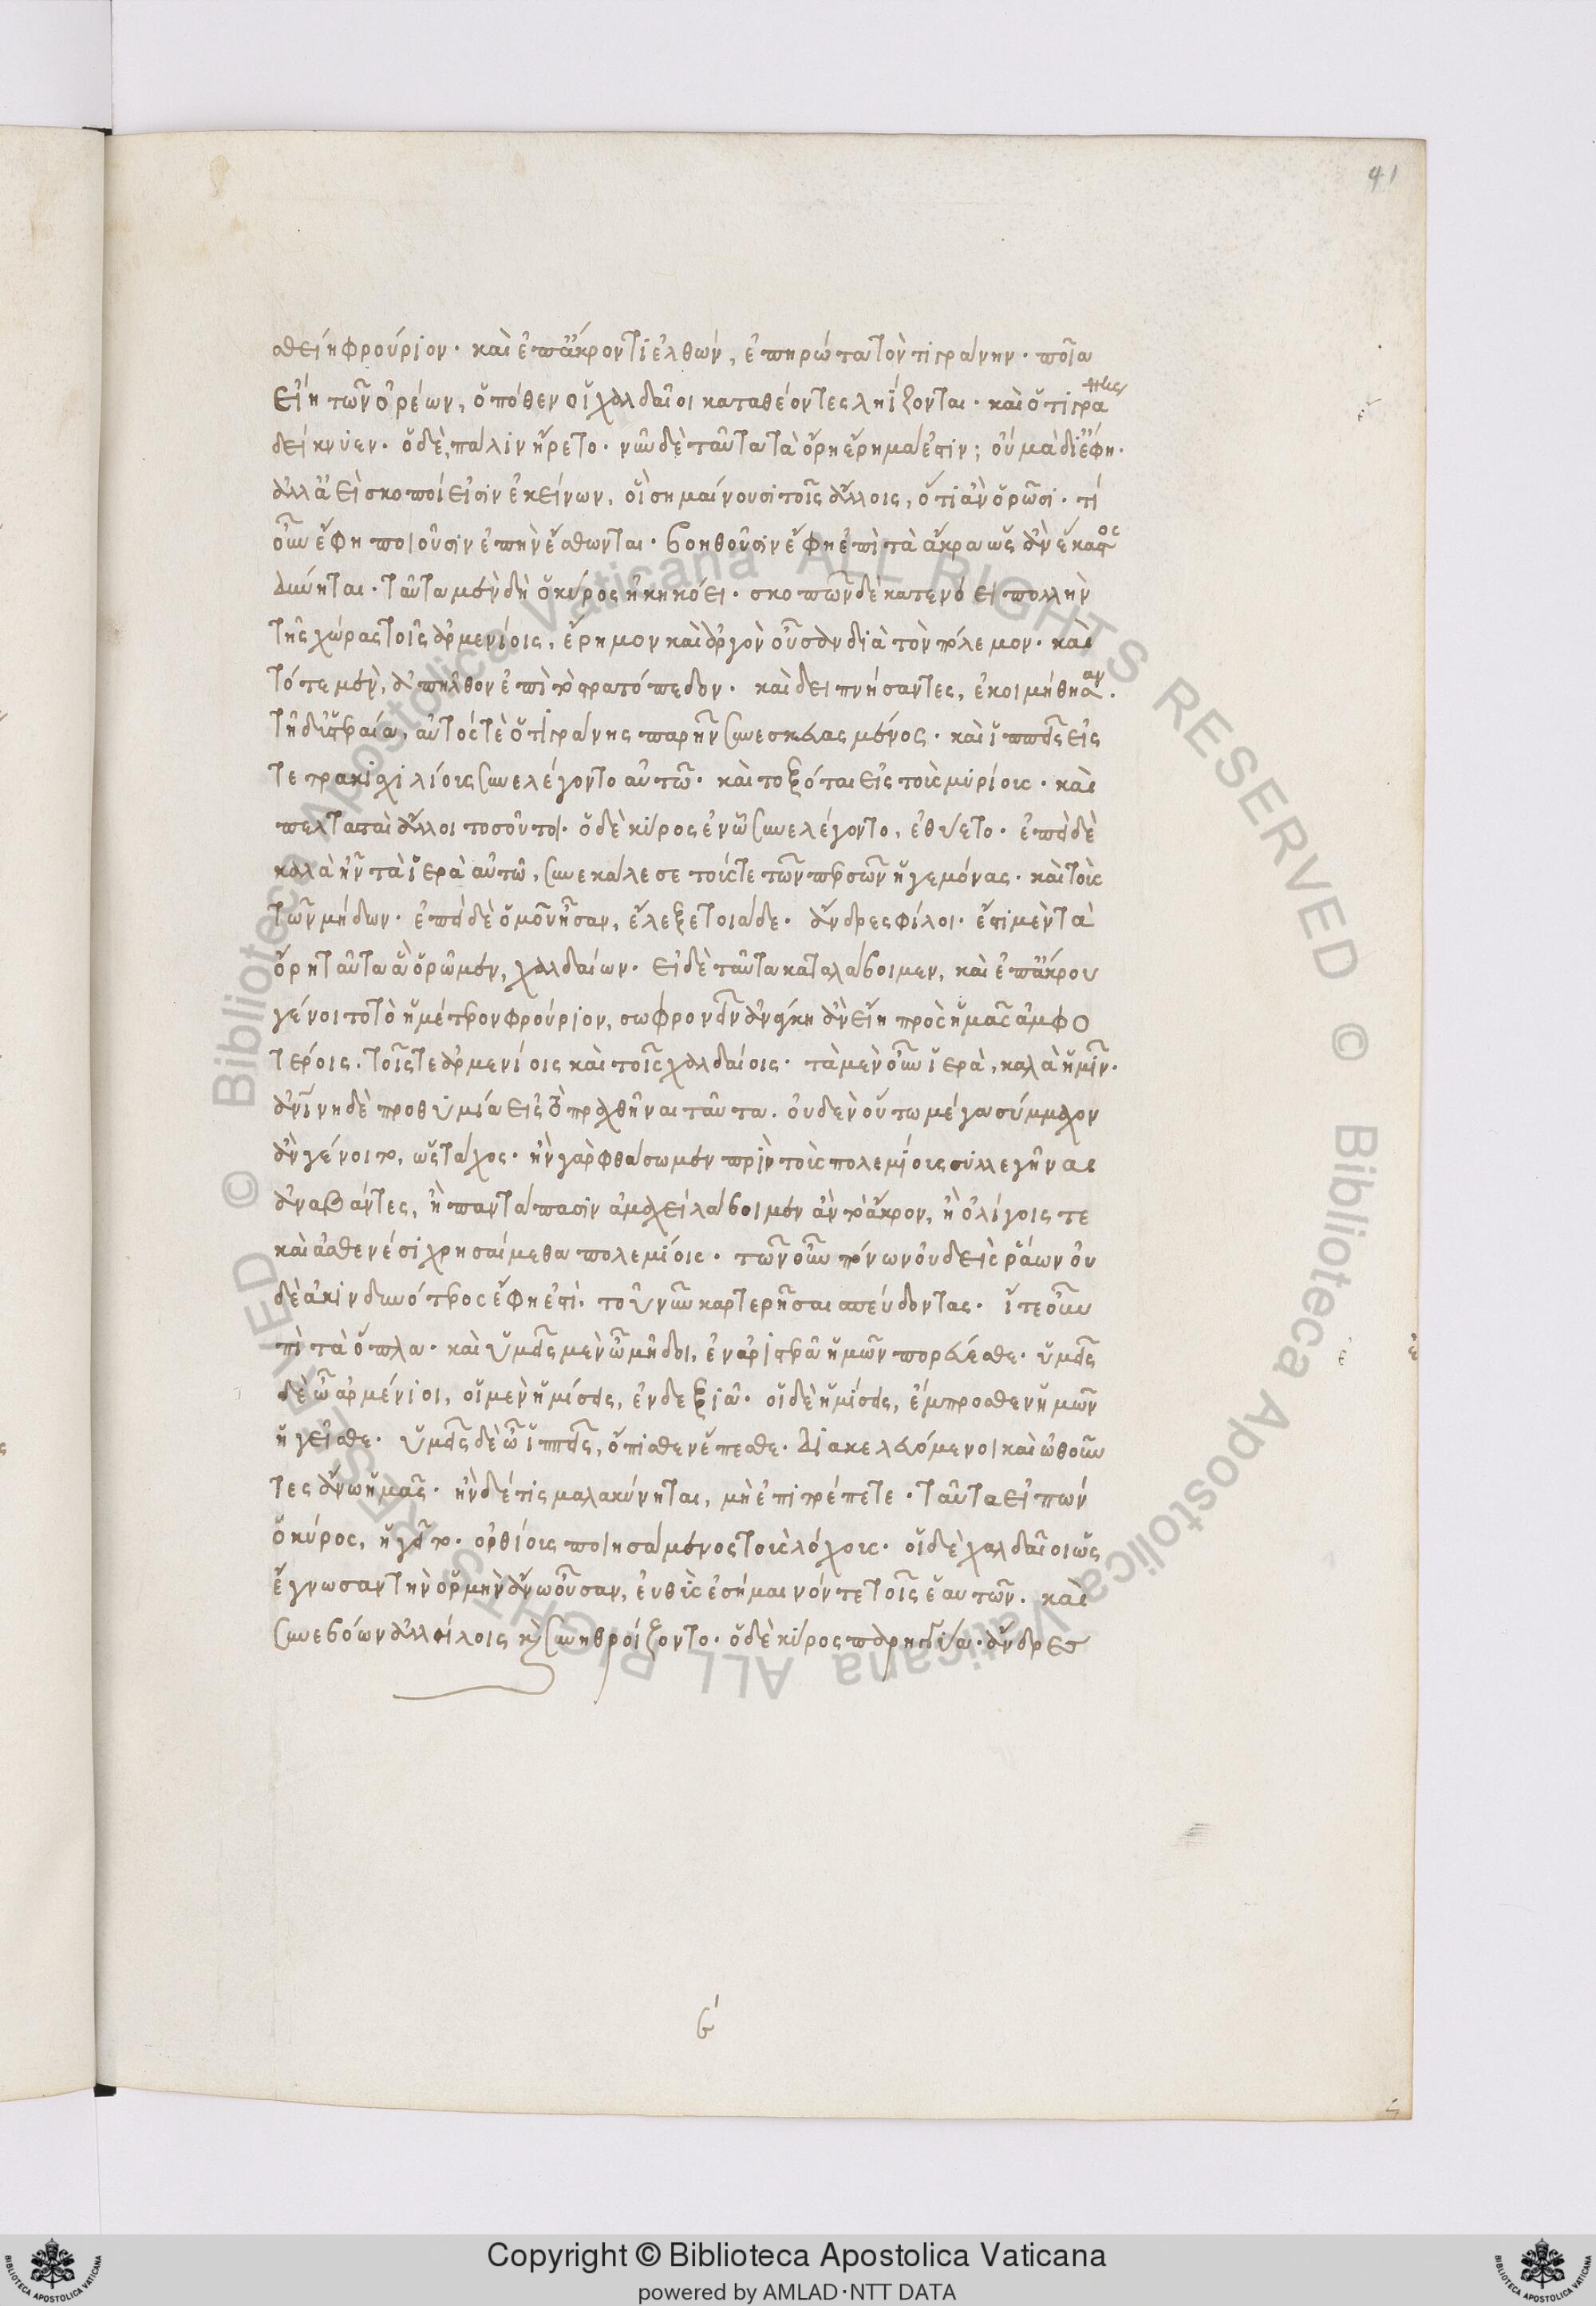 41
σθείη φρούριον. καὶ ἐπ' ἄκρον τι ἐλθών, ἐπηρώτα τὸν τιγράνην. ποῖα
εἴη τῶν ὀρέων, ὁπόθεν οἱ χαλδαῖοι καταθέοντες ληΐζονται. καὶ ὁ τιγράνης
δείκνυεν. ὁ δὲ, πάλιν ἤρετο. νῦν δὲ ταῦτα τὰ ὄρη ἔρημά ἐστιν; οὐ μὰ δί' ἔφη.
ἀλλ' ἀεὶ σκοποί εἰσιν ἐκείνων, οἳ σημαίνουσι τοῖς ἄλλοις, ὅτι ἂν ὁρῶσι. τί
οὖν ἔφη ποιοῦσιν ἐπὴν αἴσθωνται. βοηθοῦσιν ἔφη ἐπὶ τὰ ἄκρα ὡς ἂν ἕκαστος
δύνηται. ταῦτα μὲν δὴ ὁ κύρος ἠκηκόει. σκοπῶν δὲ κατενόει πολλὴν
τῆς χώρας τοῖς ἀρμενίοις, ἔρημον καὶ ἀργὸν οὖσαν διὰ τὸν πόλεμον. καὶ
τότε μὲν, ἀπῆλθον ἐπὶ τὸ στρατόπεδον. καὶ δειπνήσαντες, ἐκοιμήθησαν.
τῇ δ' ὑστεραία, αὐτός τὲ ὁ τιγράνης παρῆν συνεσκευασμένος. καὶ ἱππεῖς εἰς
τετρακισχιλίους συνελέγοντο αὐτῶ. καὶ τοξόται εἰς τοὺς μυρίους. καὶ
πελτασταὶ ἄλλοι τοσοῦτοι. ὁ δὲ κύρος ἐν ᾧ συνελέγοντο, ἐθύετο. ἐπεὶ δὲ
καλὰ ἦν τὰ ἱερὰ αὐτῶ, συνεκάλεσε τούς τε τῶν περσῶν ἡγεμόνας. καὶ τοὺς
τῶν μήδων. ἐπεὶ δὲ ὁμοῦ ἦσαν, ἔλεξε τοιάδε. ἄνδρες φίλοι. ἔστι μὲν τὰ
ὄρη ταῦτα ἃ ὁρῶμεν, χαλδαίων. εἰ δὲ ταῦτα καταλάβοιμεν, καὶ ἐπ' ἄκρου
γένοιτο τὸ ἡμέτερον φρούριον, σωφρονεῖν ἀνάγκη ἂν εἴη πρὸς ἡμᾶς ἀμφο
τέροις. τοῖς τε ἀρμενίοις καὶ τοῖς χαλδαίοις. τὰ μὲν οὖν ἱερὰ, καλὰ ἡμῖν.
ἀνθρωπίνη δὲ προθυμία εἰς τὸ πραχθῆναι ταῦτα. οὐδὲν οὕτω μέγα σύμμαχον
ἂν γένοιτο, ὡς τάχος. ἢν γὰρ φθάσωμεν πρὶν τοὺς πολεμίους συλλεγῆναι
ἀναβάντες, ἢ παντάπασιν ἀμαχεὶ λάβοιμεν ἂν τὸ ἄκρον, ἢ ὀλίγοις τε
καὶ ἀσθενέσι χρησαίμεθα πολεμίοις. τῶν οὖν πόνων οὐδεὶς ῥάων οὐ
δὲ ἀκινδυνότερος ἔφη ἐστὶ. τοῦ νῦν καρτερῆσαι σπεύδοντας. ἴτε οὖν
πὶ τὰ ὅπλα. καὶ ὑμεῖς μὲν ὦ μῆδοι, ἐν ἀριστερᾶ ἡμῶν πορεύεσθε. ὑμεῖς
δὲ ὦ ἀρμένιοι, οἱ μὲν ἡμίσεις, ἐν δεξιᾶ. οἱ δὲ ἡμίσεις, ἔμπροσθεν ἡμῶν
ἡγεῖσθε. ὑμεῖς δὲ ὦ ἱππεῖς, ὄπισθεν ἕπεσθε. διακελευόμενοι καὶ ὠθοῦν
τες ἄνω ἡμᾶς. ἢν δέ τις μαλακύνηται, μὴ ἐπιτρέπετε. ταῦτα εἰπών
ὁ κύρος, ἡγεῖτο. ὀρθίους ποιησάμενος τοὺς λόχους. οἱ δὲ χαλδαῖοι ὡς
ἔγνωσαν τὴν ὁρμὴν ἄνω οὖσαν, εὐθὺς ἐσήμαινόν τε τοῖς ἑαυτῶν. καὶ
συνεβόων ἀλλήλοις καὶ συνηθροίζοντο. ὁ δὲ κύρος παρηγγύα. ἄνδρες
Copyright © Biblioteca Apostolica Vaticana
powered by AMLAD·NTT DATA